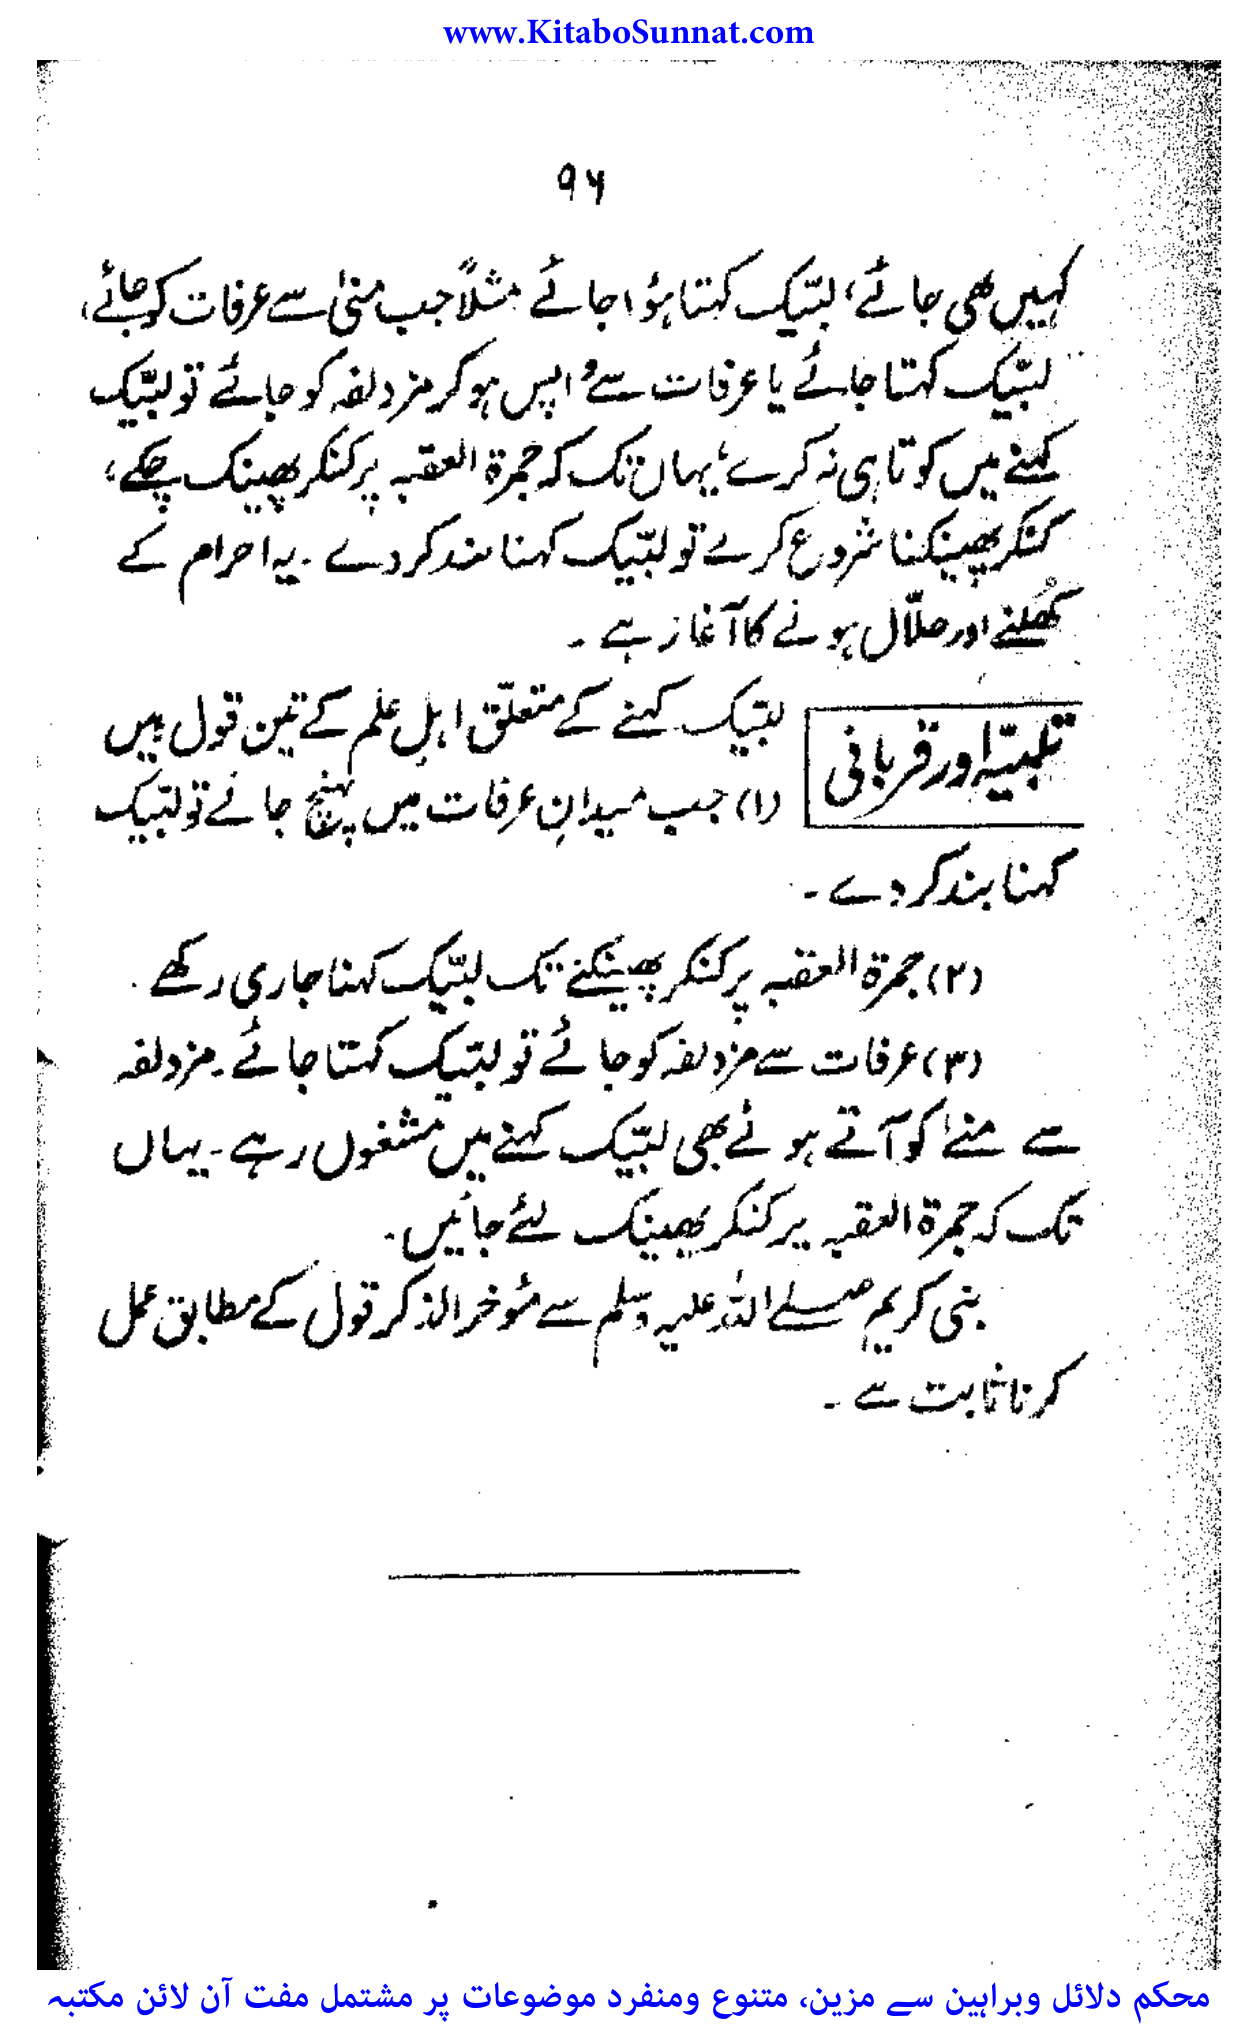 www.KitaboSunnat.com
۹۶
کہیں بھی جائے، لبّیک کہتا ہؤا جائے مثلاً جب منیٰ سے عرفات کو جائے،
لبّیک کہتا جائے یا عرفات سے واپس ہو کر مزدلفہ کو جائے تو لبّیک
کہنے میں کوتاہی نہ کرے، یہاں تک کہ جمرۃ العقبہ پر کنکر پھینک چکے،
کنکر پھینکنا شروع کرے تو لبّیک کہنا بند کر دے ۔ یہ احرام کے
کُھلنے اور حلّال ہونے کا آغاز ہے ۔
تلبیّہ اور قربانی
لبّیک کہنے کے متعلّق اہلِ علم کے تین قول ہیں
(۱) جب میدانِ عرفات میں پہنچ جائے تو لبّیک
کہنا بند کر دے ۔
(۲) جمرۃ العقبہ پر کنکر پھینکنے تک لبّیک کہنا جاری رکھے ۔
(۳) عرفات سے مزدلفہ کو جائے تو لبّیک کہتا جائے ۔ مزدلفہ
سے منےٰ کو آتے ہوئے بھی لبّیک کہنے میں مشغول رہے ۔ یہاں
تک کہ جمرۃ العقبہ پر کنکر پھینک لئے جائیں ۔
نبی کریم صلے اللہ علیہ وسلم سے مؤخر الذکر قول کے مطابق عمل
کرنا ثابت ہے ۔
محکم دلائل وبراہین سے مزین، متنوع ومنفرد موضوعات پر مشتمل مفت آن لائن مکتبہ